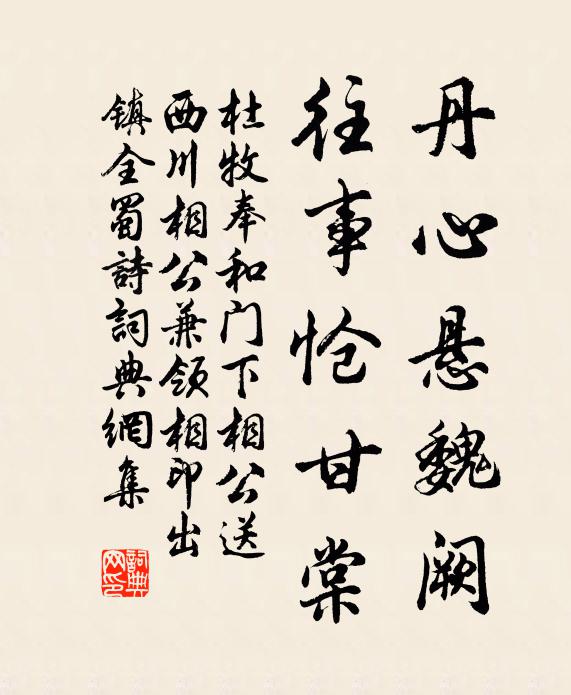 丹心悬魏阙
往事怆甘棠
杜牧奉和门下相公送
西川相公兼领相印出
镇全蜀詩詞典網集
詞典网印